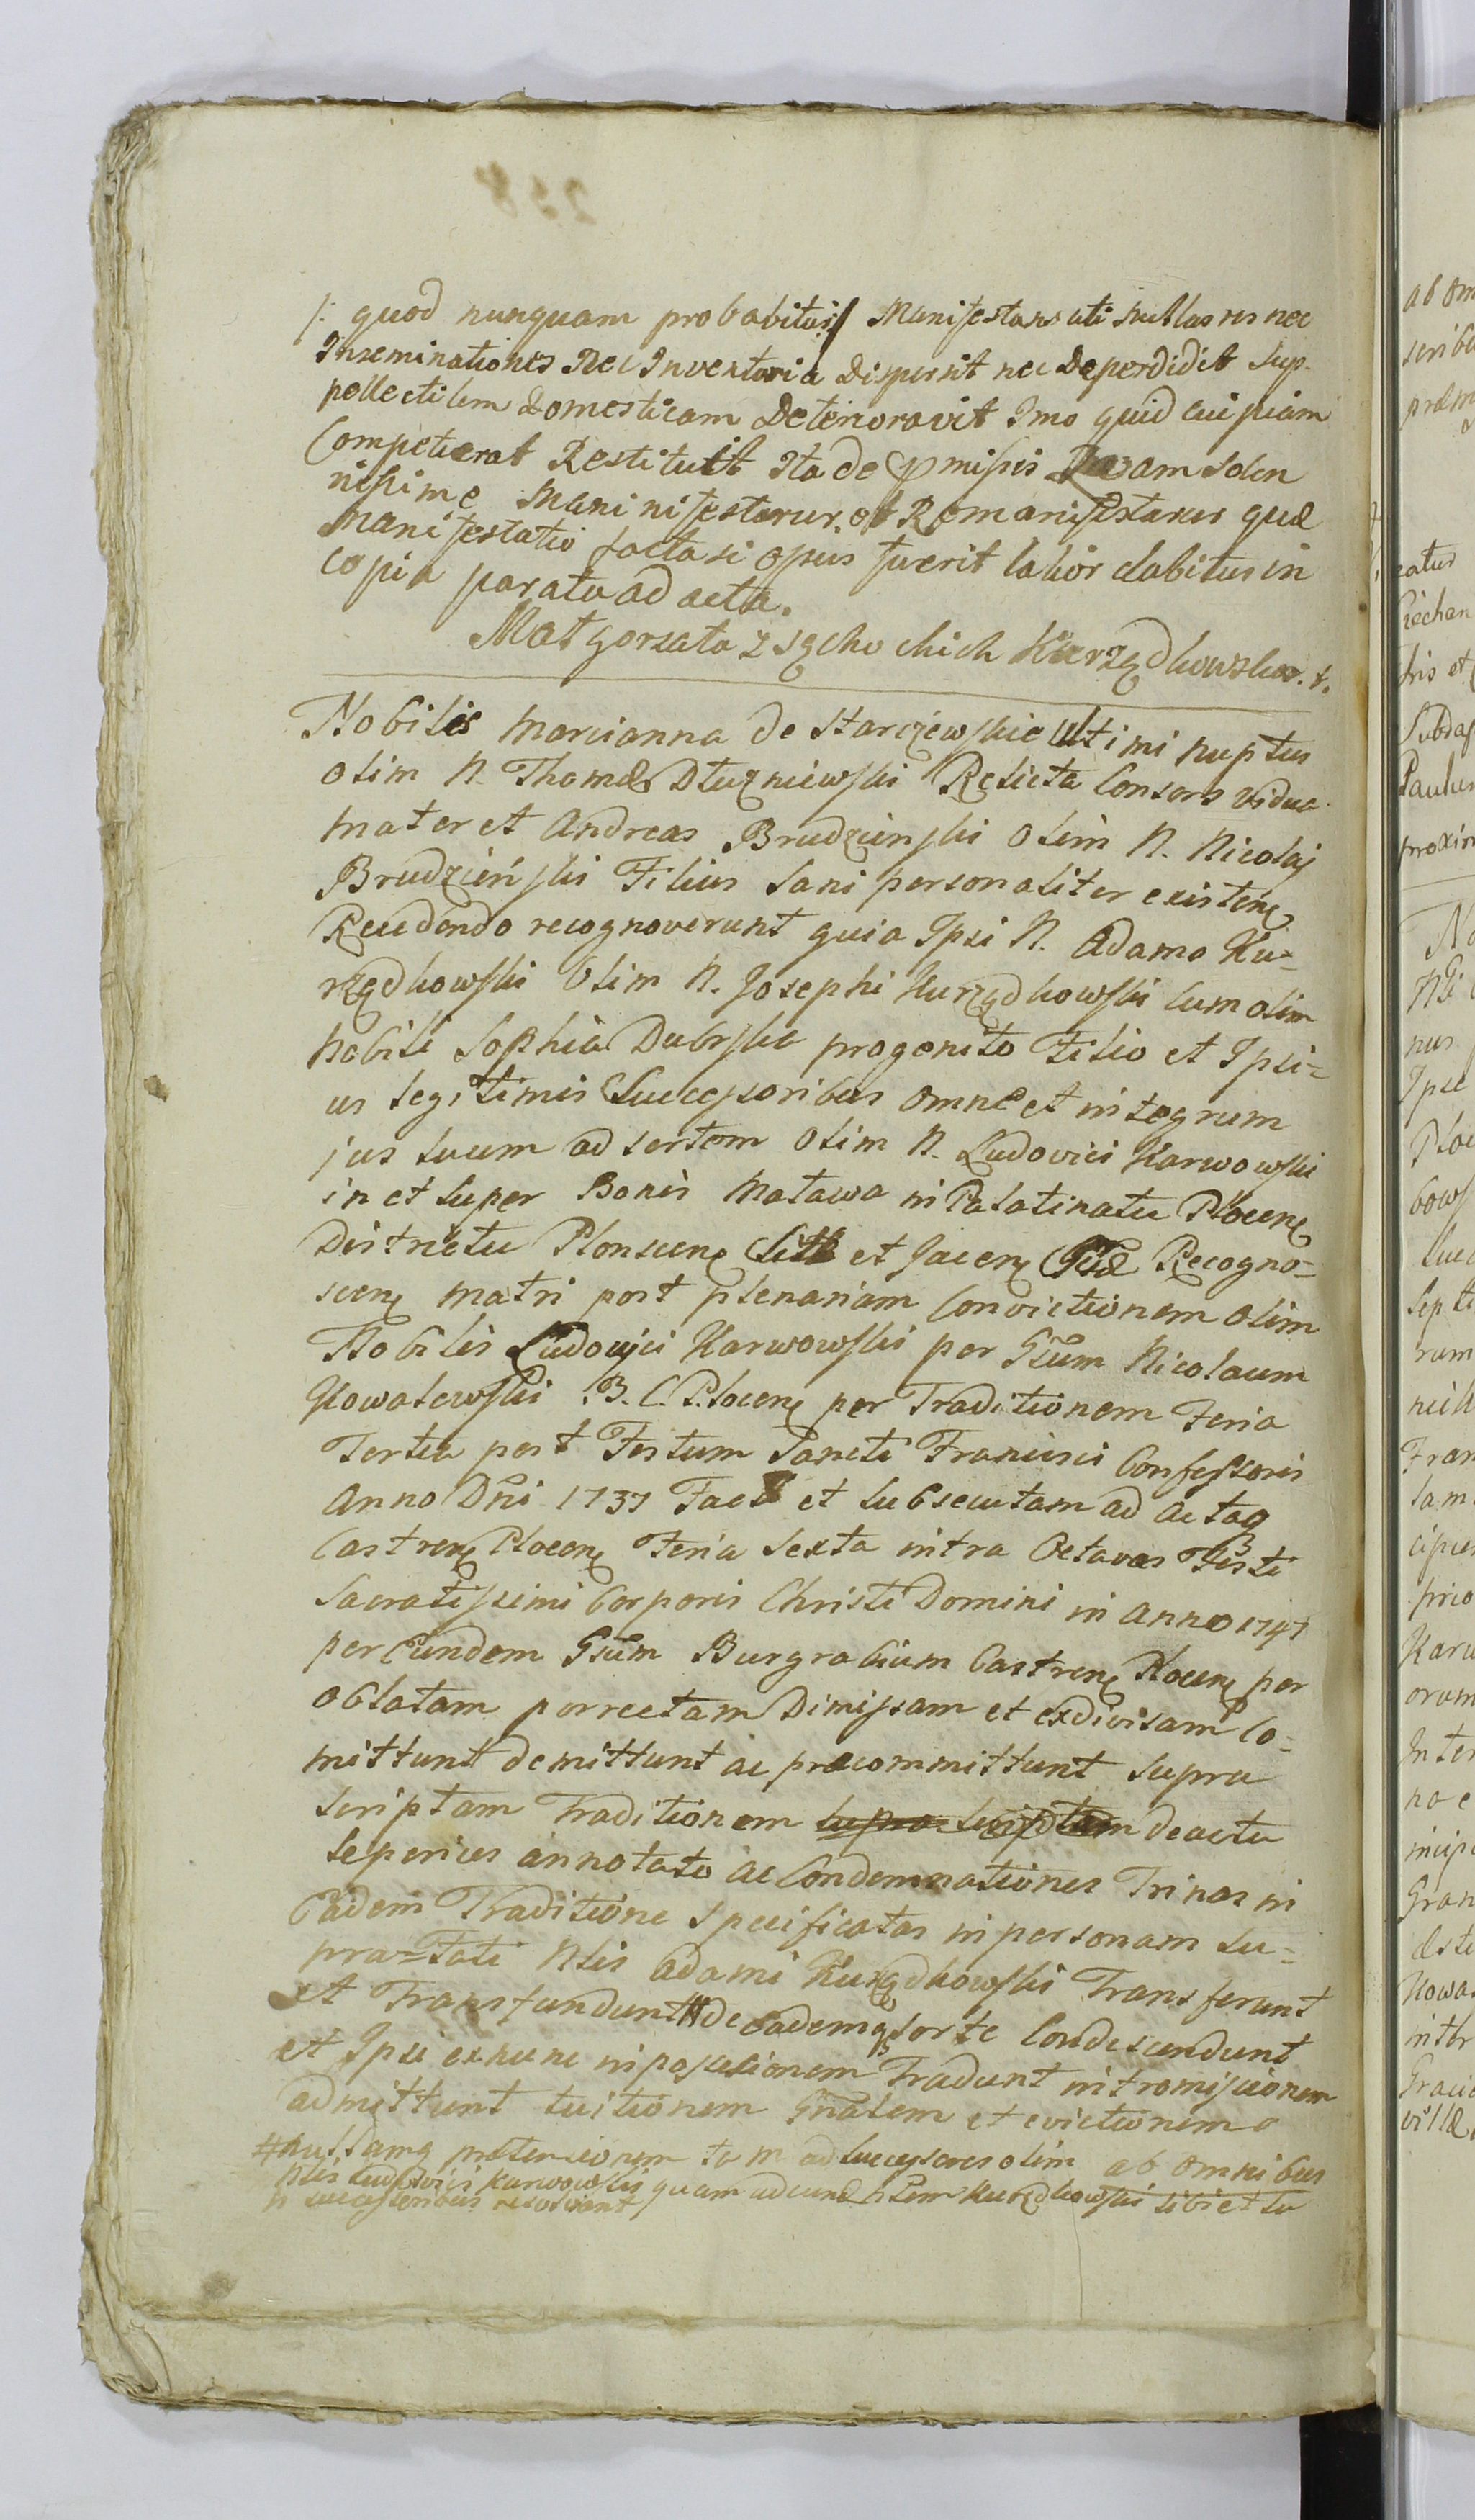 /: quod nunquam probabitur :/ Manifestans uti nullas res nec
Inseminationes Nec Inventaria Dispersit nec Deperdidit Sup-
pellectilem Domesticam Deterioravit Imo quid cuipiam
Competierat Restituit Ita de pmissis Suam Solen
nissime Maninifestatur et Remanifestatur quæ
Manifestatio facta si opus fuerit latior dabitur in
copia parata ad acta.
Małgorzata z Sącho ckich Kurządkowska. +.
Nobilis Marcianna de Starczewskie ultimi nuptus
olim N. Thomæ Dłuzniewski Relicta Consors vidua
mater et Andreas Brudzinski Olim N. Nicolaj
Brudzinski Filius Sani personaliter existenẽ
Recedendo recognoverunt quia Ipsi N. Adamo Ku-
rządkowski Olim N. Josephi Kurządkowski cum olim
Nobili Sophia Dubrska progenito Filio et Ipsi-
us legitimis Successoribus omne et integrum
jus suum ad sortem Olim N. Ludovici Karwowski
in et super Bonis Matawa in Palatinatu Plocenẽ
Districtu Plonscenẽ Sitt et Jacenẽ Recogno-
scenẽ matri post plenariam Convictionem olim
Nobilis Ludovici Karwowski per Gsum Nicolaum
Kowalewski B. C. Plocenẽ per Traditionem Feria
Tertia post Festum Sancti Francisci Confessoris
Anno Dñi 1737 Fact et subsecutam ad actaq
Castrenẽ Plocenẽ Feria Sexta intra Octavas Festi
Sacratissimi Corporis Christi Domini in Anno 1747
per Eundem Gsum Burgrabium Castrenẽ Plocenẽ per
oblatam porrectam Dimissam et exdivisam Co-
mittunt demittunt ac præcommittunt supra
scriptam Traditionem supra scriptam de actu
Seperius annotato ac Condemnationes Trinas in
Eadem Traditione Specificatas in personam su-
pra-Tati Nlis Adami Kurządkowski Transferunt
et Transfundunt # de Eademq sorte Condescendunt
et Ipsi exnunc in possesionem Tradunt intromissionem
admittunt tuitionem Gñalem et evictionem
ab omnibus
# nullamq prætensionem tam ad successores olim
Nlis Ludovici Karwowski quam ad eund Nlem Kurządkowski sibi et su
is successoribus resolvant